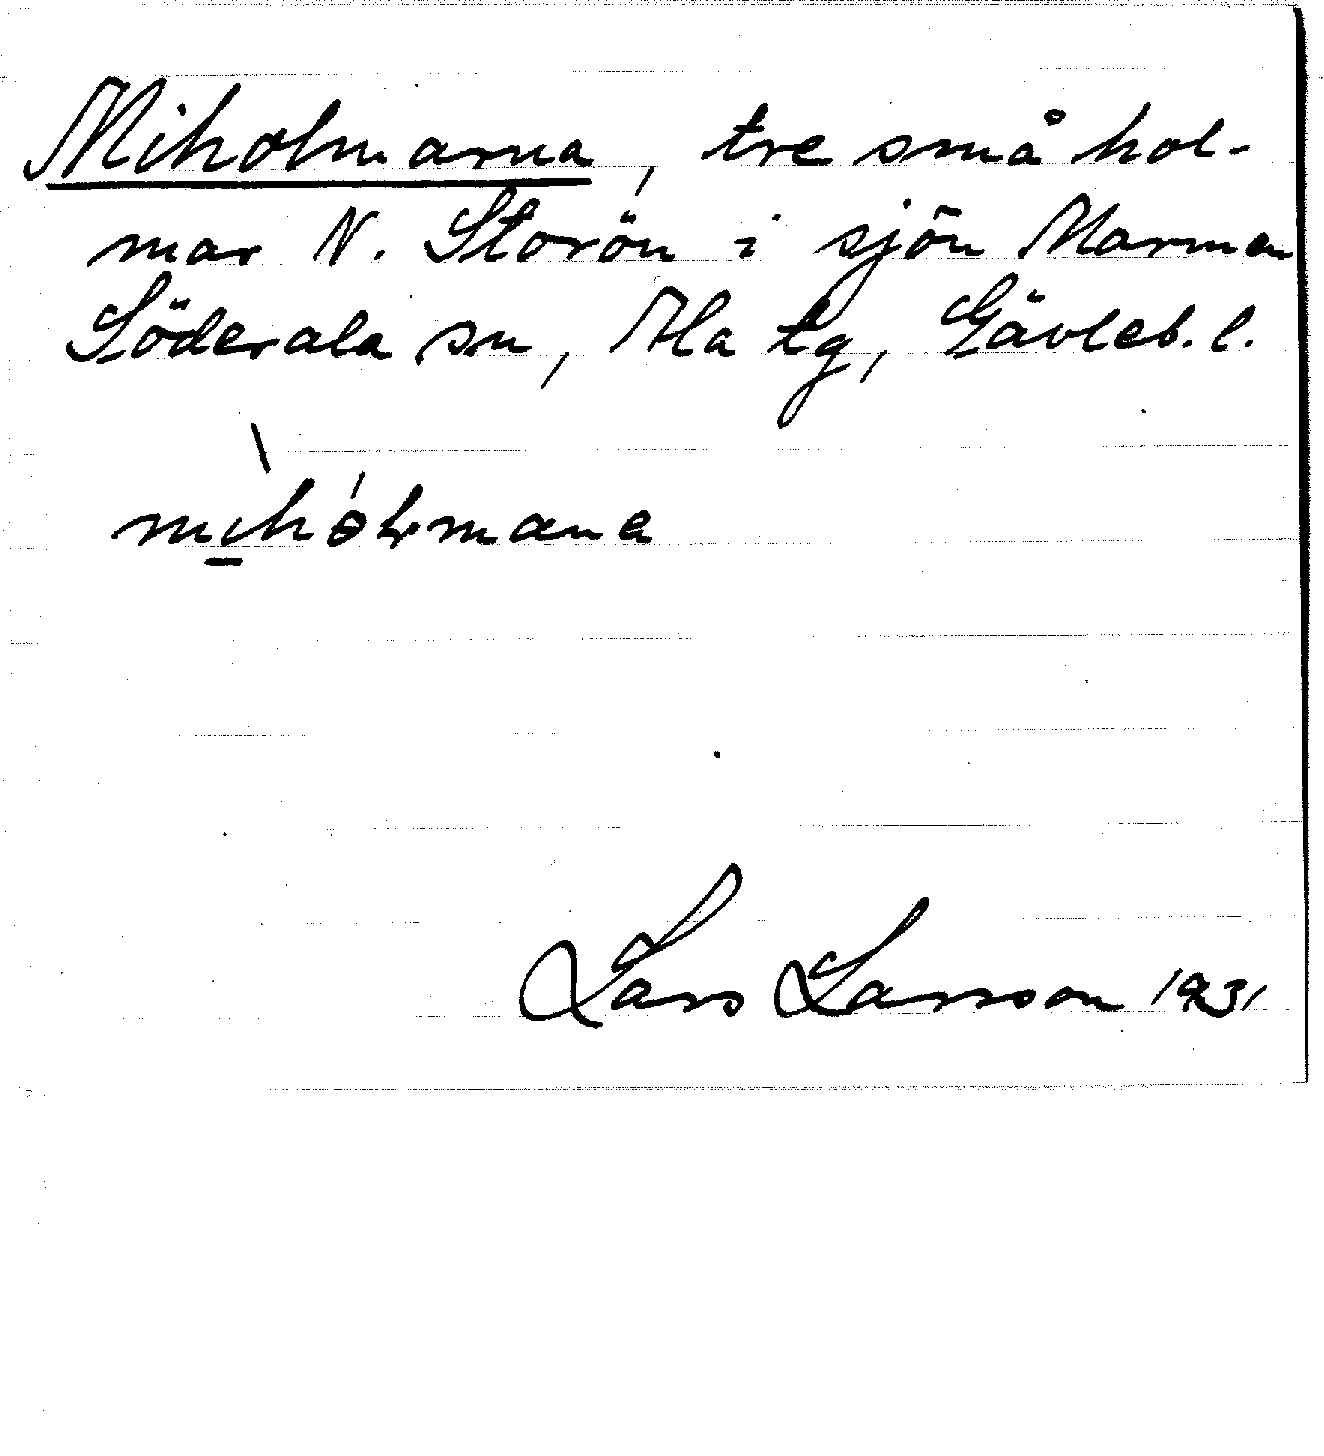 Miholmarna, tre små hol-
mar N. Storön i sjön Marmen
Söderala sn, Ala tg, Gävleb. l.
Lars Larsson 1931